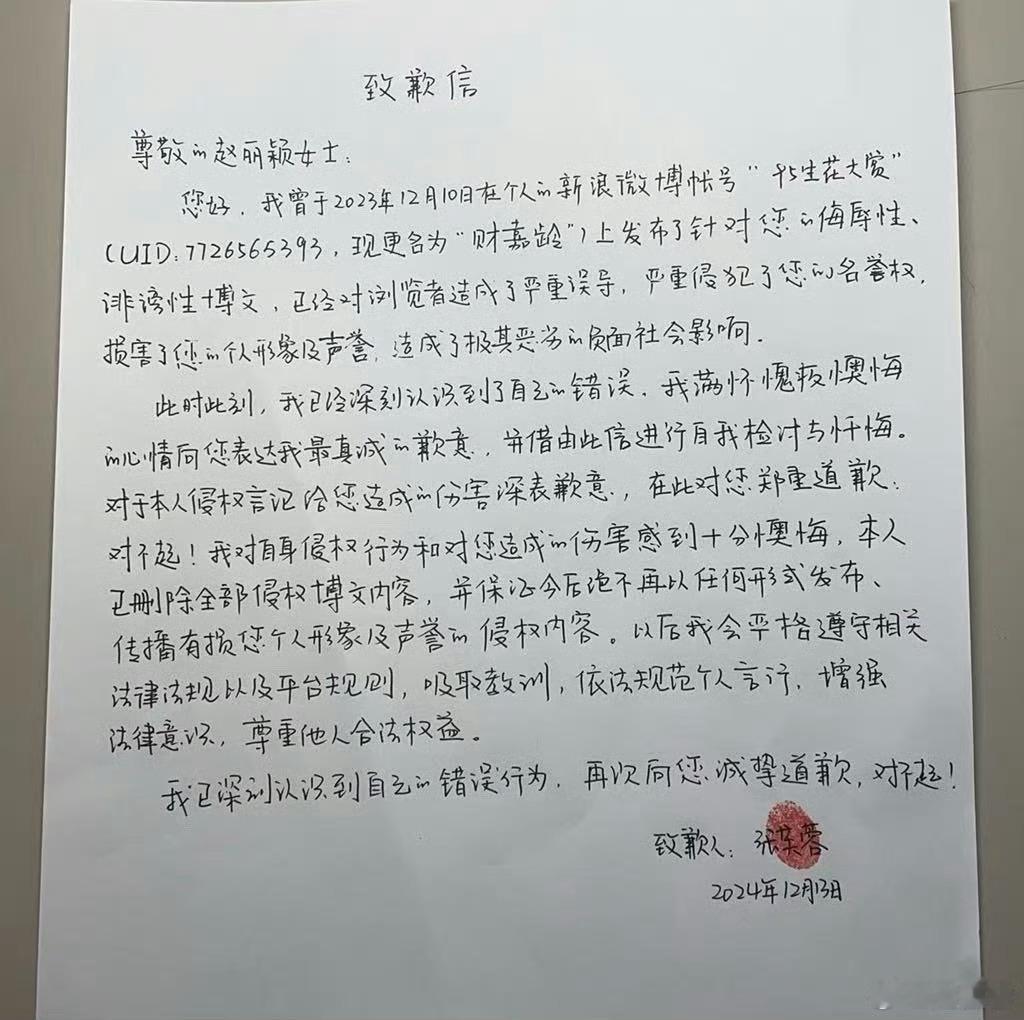 致歉信
尊敬的赵丽颖女士：
您好，我曾于2023年12月10日在个人的新浪微博帐号“95生花大赏”
(UID:7726565393，现更名为“财嘉龄”)上发布了针对您的侮辱性、
诽谤性博文，已经对浏览者造成了严重误导，严重侵犯了您的名誉权，
损害了您的个人形象及声誉，造成了极其恶劣的负面社会影响。
此时此刻，我已经深刻认识到了自己的错误。我满怀愧疚懊悔
的心情向您表达我最真诚的歉意，并借由此信进行自我检讨与忏悔。
对于本人侵权言论给您造成的伤害深表歉意，在此对您郑重道歉：
对不起！我对自身侵权行为和对您造成的伤害感到十分懊悔，本人
已删除全部侵权博文内容，并保证今后绝不再以任何形式发布、
传播有损您个人形象及声誉的侵权内容。以后我会严格遵守相关
法律法规以及平台规则，吸取教训，依法规范个人言行，增强
法律意识，尊重他人合法权益。
我已深刻认识到自己的错误行为，再次向您诚挚道歉，对不起！
致歉人：张芙蓉
2024年12月13日